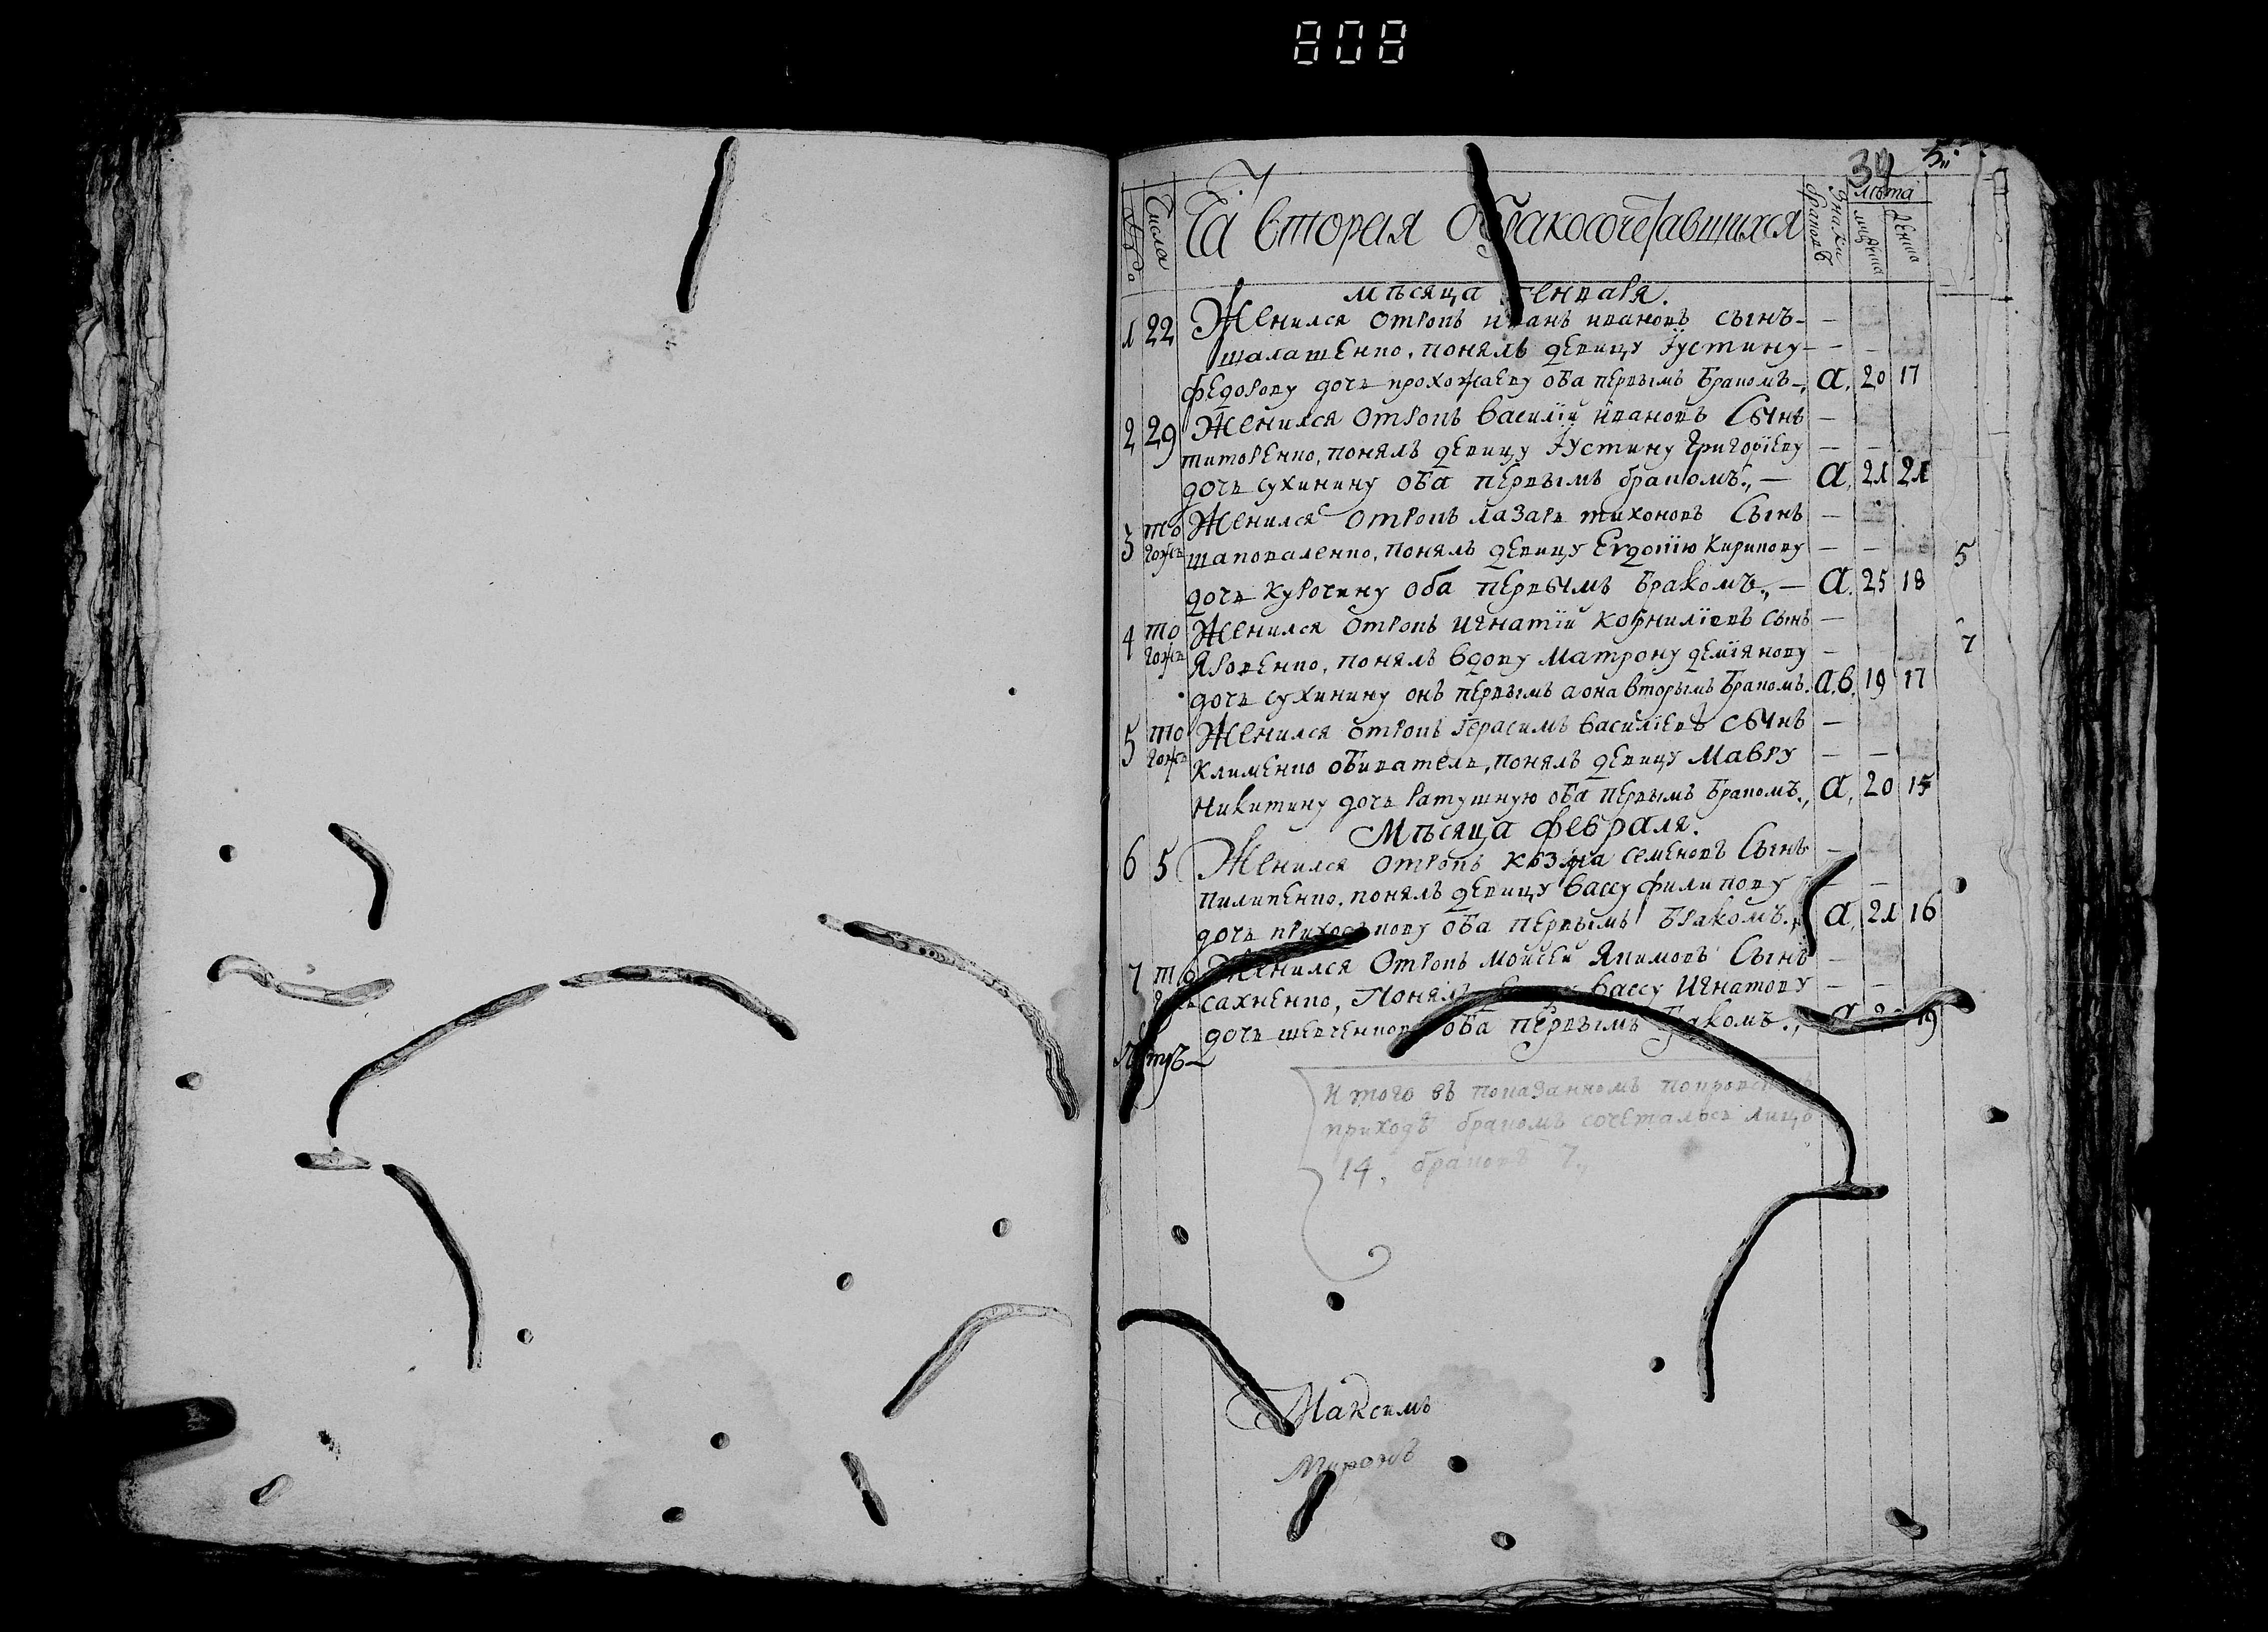 808
34
5
Числа
Ча вторая бракосочетавшихся
лѣта
мѣсяца Генваря.
1 22 Женился отрокъ иванъ ивановъ сынъ
шалашенко, понялъ девицу Іустину
федорову дочь прохожаеву оба первымъ бракомъ а. 20 17
2 29 Женился отрокъ василїй ивановъ сынъ
титоренко, понялъ девицу Іустину григорїеву
дочь сухинину оба первымъ бракомъ., а. 21 21
3 то Женился отрокъ лазарь тихоновъ сынъ
гожъ шаповаленко, понялъ девицу Евдокїю Кирикову
дочь курочкину оба первымъ бракомъ., а. 25 18
5
4 то Женился отрокъ игнатїй корнилїевъ сынъ
гожъ яковенко, понялъ вдову матрону демїянову
7
дочь сухинину онъ первымъ а она вторымъ бракомъ. а.в. 19 17
5 то Женился отрокъ герасимъ василїевъ сынъ
гожъ клименко обиватель, понялъ девицу мавру
никитину дочь ратушную оба первымъ бракомъ., а. 20 15
Мѣсяца февраля.
6 5 Женился отрокъ козма семеновъ сынъ
пилипенко, понялъ девицу вассу филипову
дочь оба первымъ бракомъ., а. 21 16
7 то Женился отрокъ моисей якимовъ сынъ
сахненко, понялъ вассу игнатову
дочь оба первымъ бракомъ., а 19
И того въ показанномъ покровском
приходѣ бракомъ сочеталось лицъ
14, браковъ 7.,
Максимъ
Миронъ